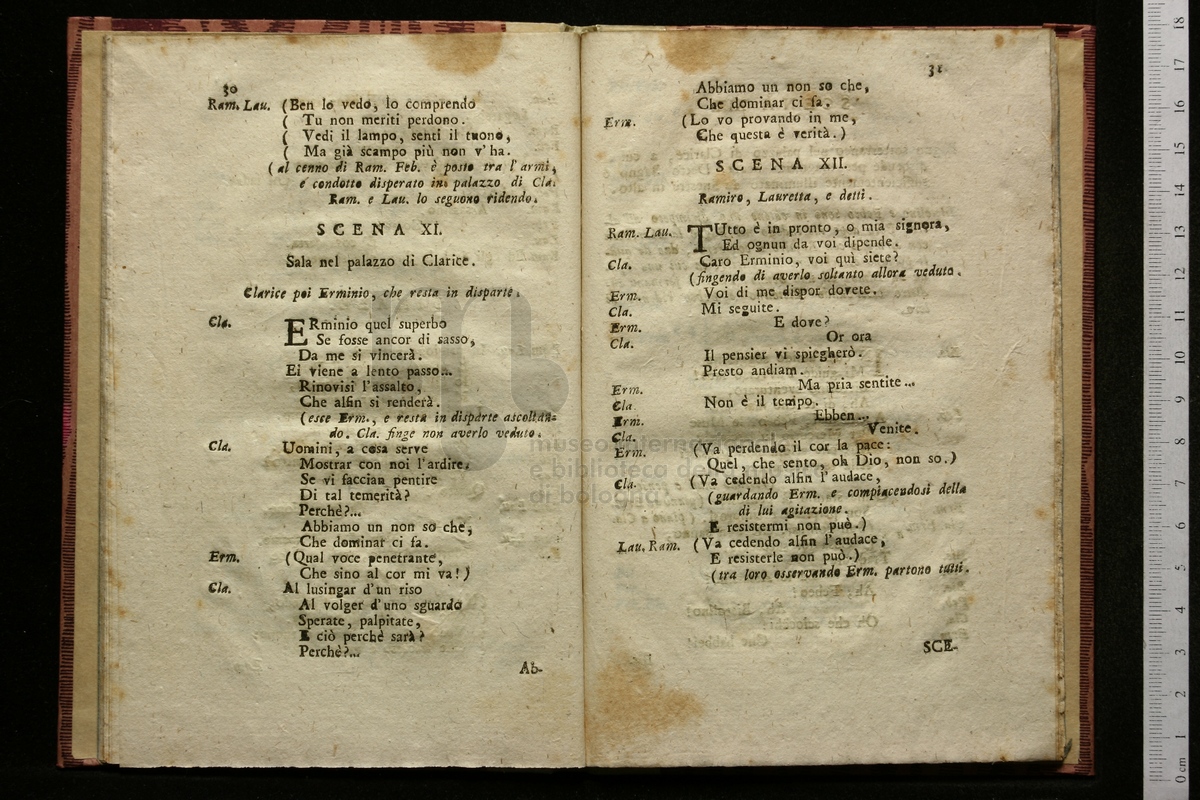 30
Ram. Lau. (Ben lo vedo, lo comprendo
( Tu non meriti perdono.
( Vedi il lampo, senti il tuono,
( Ma già scampo più non v'ha.
(al cenno di Ram. Feb. è posto tra l'armi,
e condotto disperato in palazzo di Cla.
Ram. e Lau. lo seguono ridendo.
SCENA XI.
Sala nel palazzo di Clarice.
Clarice poi Erminio, che resta in disparte.
Cla. ERminio quel superbo
Se fosse ancor di sasso,
Da me si vincerà.
Ei viene a lento passo...
Rinovisi l'assalto,
Che alfin si renderà.
(esce Erm., e resta in disparte ascoltan-
do. Cla. finge non averlo veduto.
Cla. Uomini, a cosa serve
Mostrar con noi l'ardire,
Se vi faccian pentire
Di tal temerità?
Perchè?...
Abbiamo un non so che,
Che dominar ci fa.
Erm. (Qual voce penetrante,
Che sino al cor mi va!)
Cla. Al lusingar d'un riso
Al volger d'uno sguardo
Sperate, palpitate,
E ciò perchè sarà?
Perchè?...
Ab-
31
Abbiamo un non so che,
Che dominar ci fa.
Erm. (Lo vo provando in me,
Che questa è verità.)
SCENA XII.
Ramiro, Lauretta, e detti.
Ram. Lau. TUtto è in pronto, o mia signora,
Ed ognun da voi dipende.
Cla. Caro Erminio, voi quì siete?
(fingendo di averlo soltanto allora veduto.
Erm. Voi di me dispor dovete.
Cla. Mi seguite.
Erm. E dove?
Cla. Or ora
Il pensier vi spiegherò.
Presto andiam.
Erm. Ma pria sentite...
Cla. Non è il tempo.
Erm. Ebben...
Cla. Venite.
Erm. (Va perdendo il cor la pace:
Quel, che sento, oh Dio, non so.)
Cla. (Va cedendo alfin l'audace,
(guardando Erm. e compiacendosi della
di lui agitazione.
E resistermi non può.)
Lau. Ram. (Va cedendo alfin l'audace,
E resisterle non può.)
(tra loro osservando Erm. partono tutti.
SCE-
museo interna
e biblioteca de
di bologna
0 cm 1 2 3 4 5 6 7 8 9 10 11 12 13 14 15 16 17 18